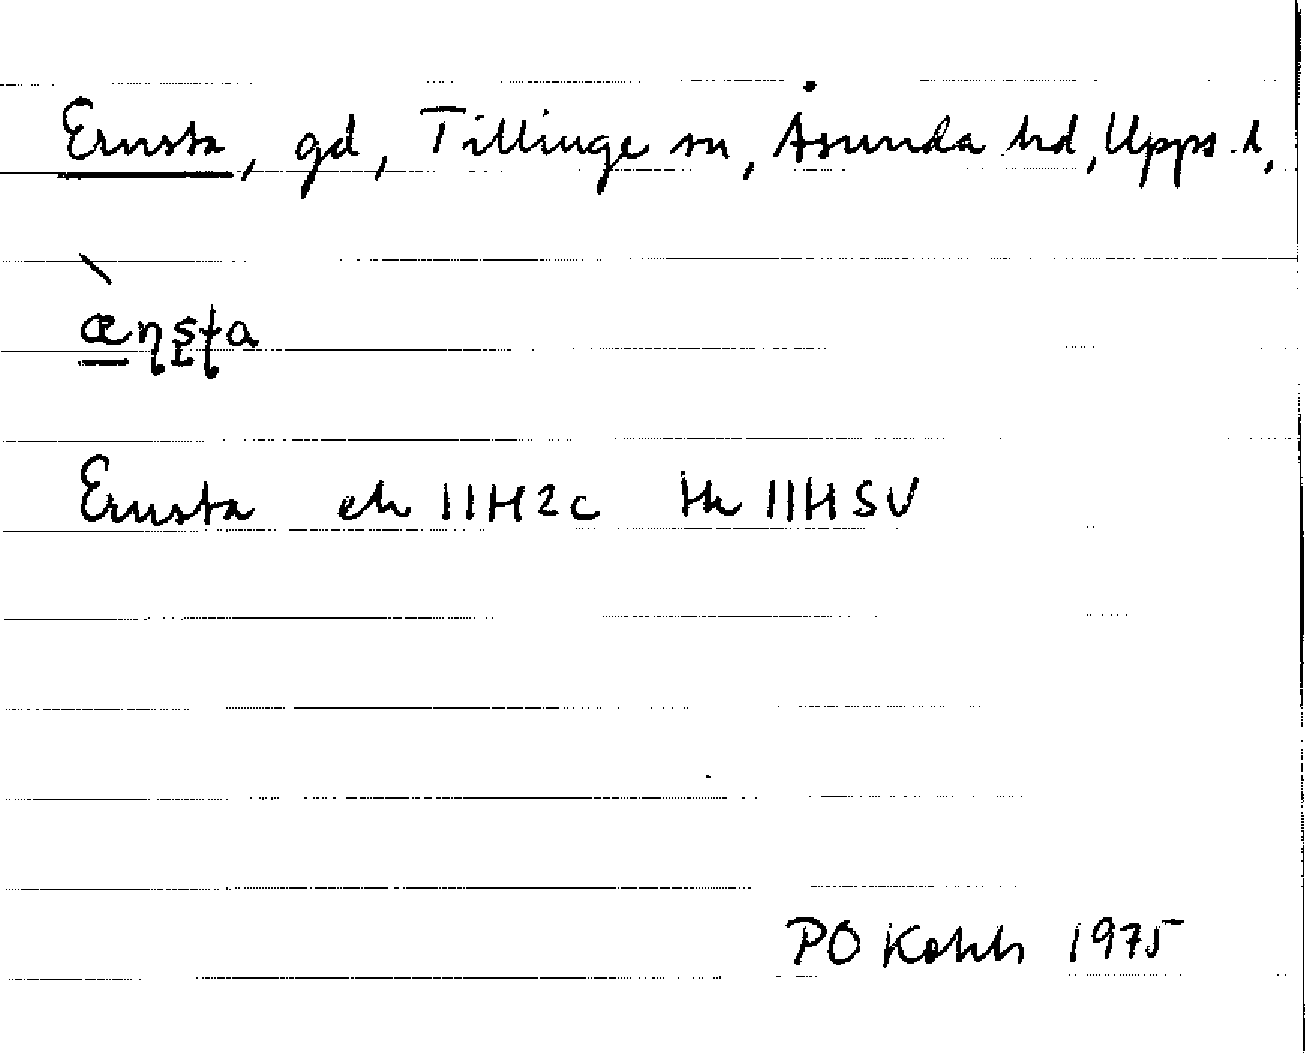 Ernsta, gd, Tillinge sn, Åsunda hd, Upps. l,
æɳʂʈa
Ernsta ek 11H2c Hk 11HSV
PO 1975